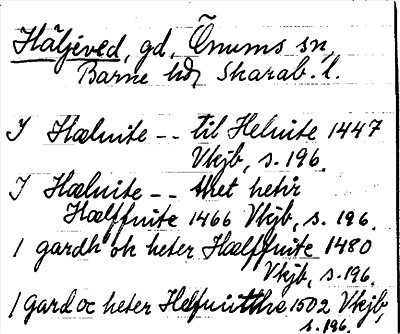 Häljeved, gd, Önums sn,
Barne hd, Skarab. l.
I Hæluite -- til Heluite 1447
Vkjb, s. 196.
I Hæluite -- thet hetir
Hælffuite 1466 Vkjb, s. 196.
1 gardh ok heter Hælffuite 1480
Vkjb, s. 196.
1 gard oc heter Helfuitthe 1502 Vkjb,
s. 196.